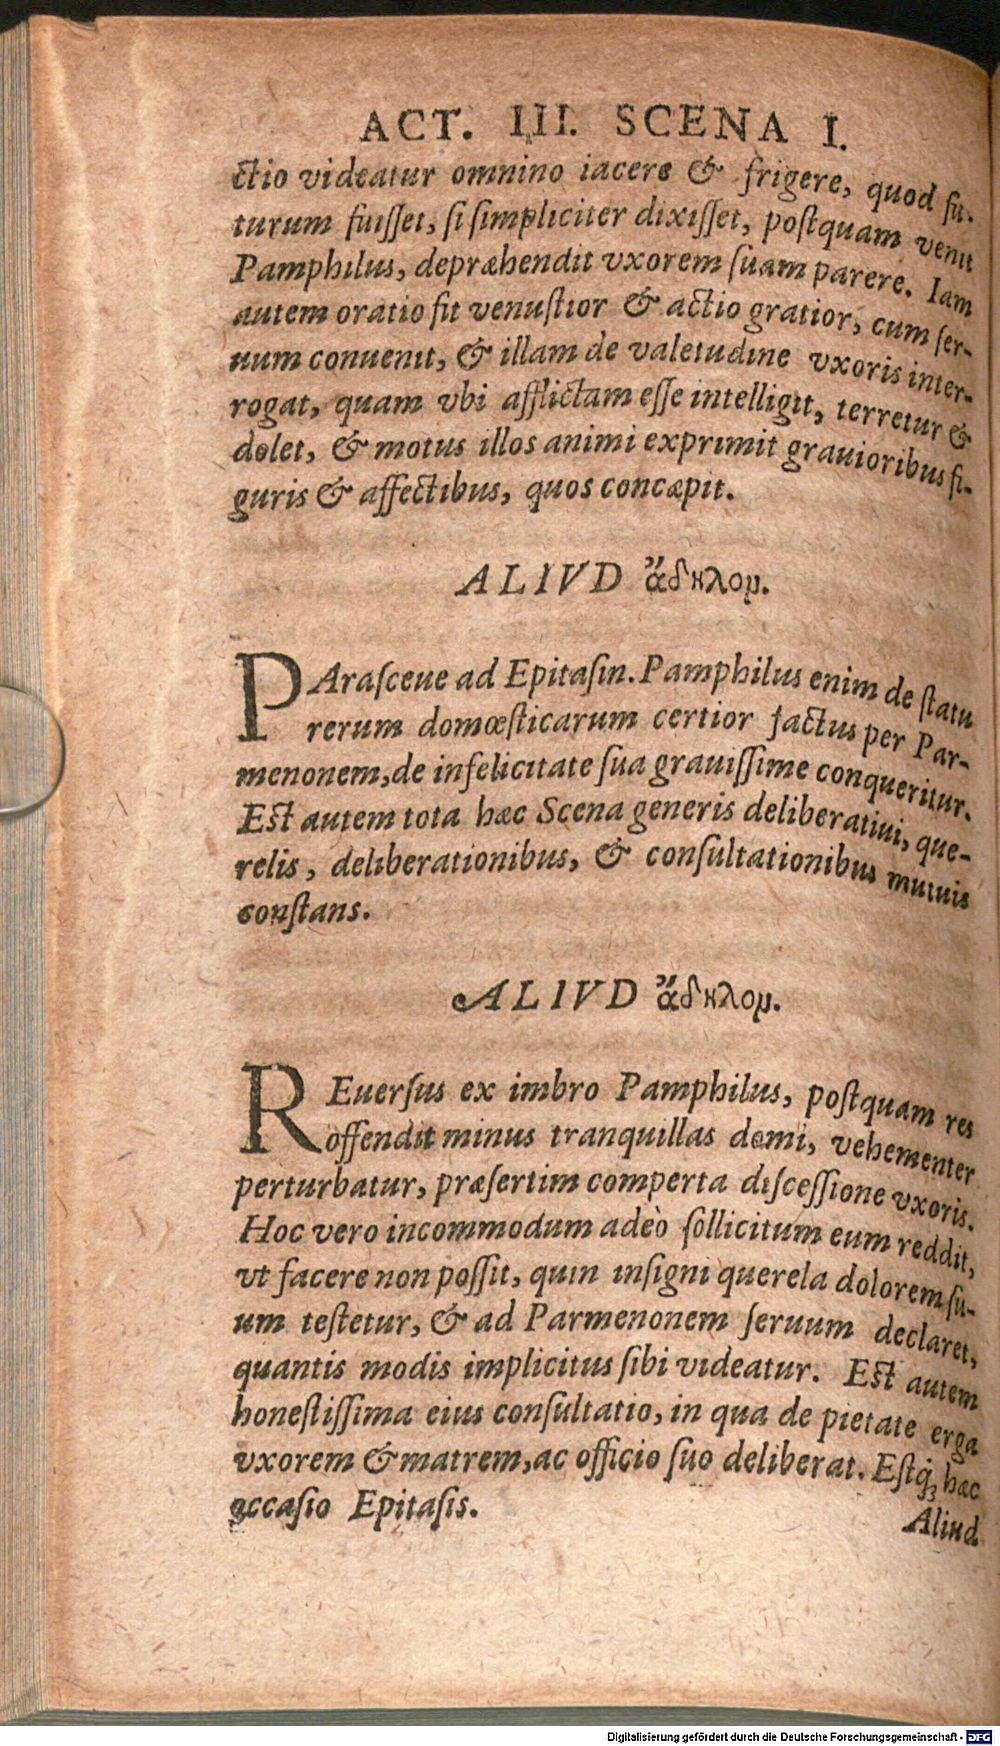 ACT. III. SCENA I.
ctio videatur omnino iacere & frigere, quod fu-
turum fuiſſet, ſi ſimpliciter dixiſſet, poſtquam venit
Pamphilus, depræhendit vxorem ſuam parere. Iam
autem oratio fit venuſtior & actio gratior, cum ſer-
uum conuenit, & illam de valetudine vxoris inter-
rogat, quam vbi afflictam eſſe intelligit, terretur &
dolet, & motus illos animi exprimit grauioribus fi-
guris & affectibus, quos concæpit.
ALIVD ἄδηλομ.
PAraſceue ad Epitaſin. Pamphilus enim de ſtatu
rerum domœſticarum certior factus per Par-
menonem, de infelicitate ſua grauiſſime conqueritur.
Eſt autem tota hæc Scena generis deliberatiui, que-
relis, deliberationibus, & conſultationibus mutuis
conſtans.
ALIVD ἄδηλομ.
REuerſus ex imbro Pamphilus, poſtquam res
offendit minus tranquillas domi, vehementer
perturbatur, præſertim comperta diſceſſione vxoris.
Hoc vero incommodum adeò ſollicitum eum reddit,
vt facere non poſſit, quin inſigni querela dolorem ſu-
um teſtetur, & ad Parmenonem ſeruum declaret,
quantis modis implicitus ſibi videatur. Eſt autem
honeſtiſſima eius conſultatio, in qua de pietate erga
vxorem & matrem, ac officio ſuo deliberat. Eſtq́ꝫ hæc
occaſio Epitaſis.
Aliud
Digitalisierung gefördert durch die Deutsche Forschungsgemeinschaft - DFG